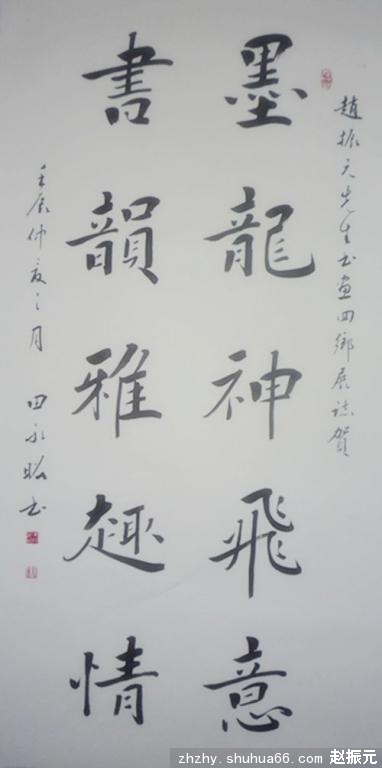 趙振元先生书画回鄉展誌賀
墨龍神飛意
書韻雅趣情
壬辰仲夏之月
田永昭书
zhzhy.shuhua66.com 赵振元